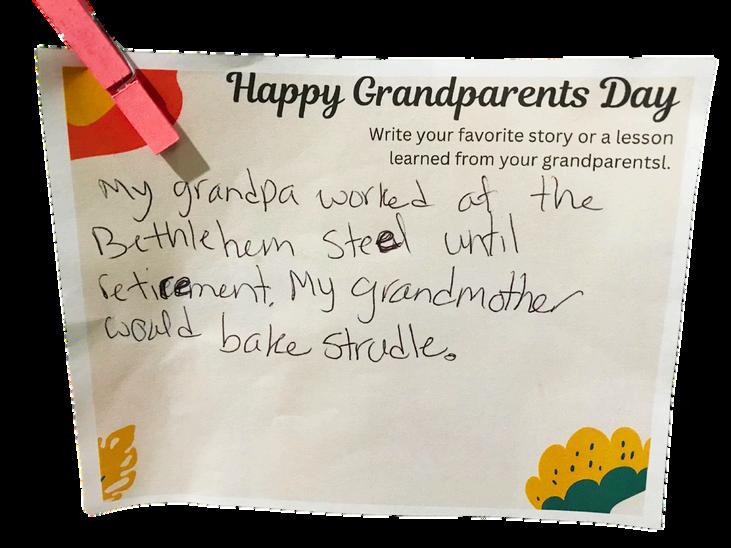 Happy Grandparents Day
Write your favorite story or a lesson
learned from your grandparentsl.
My grandpa worked at the
Bethlehem Steel until
retirement. My grandmother
would bake strudle.